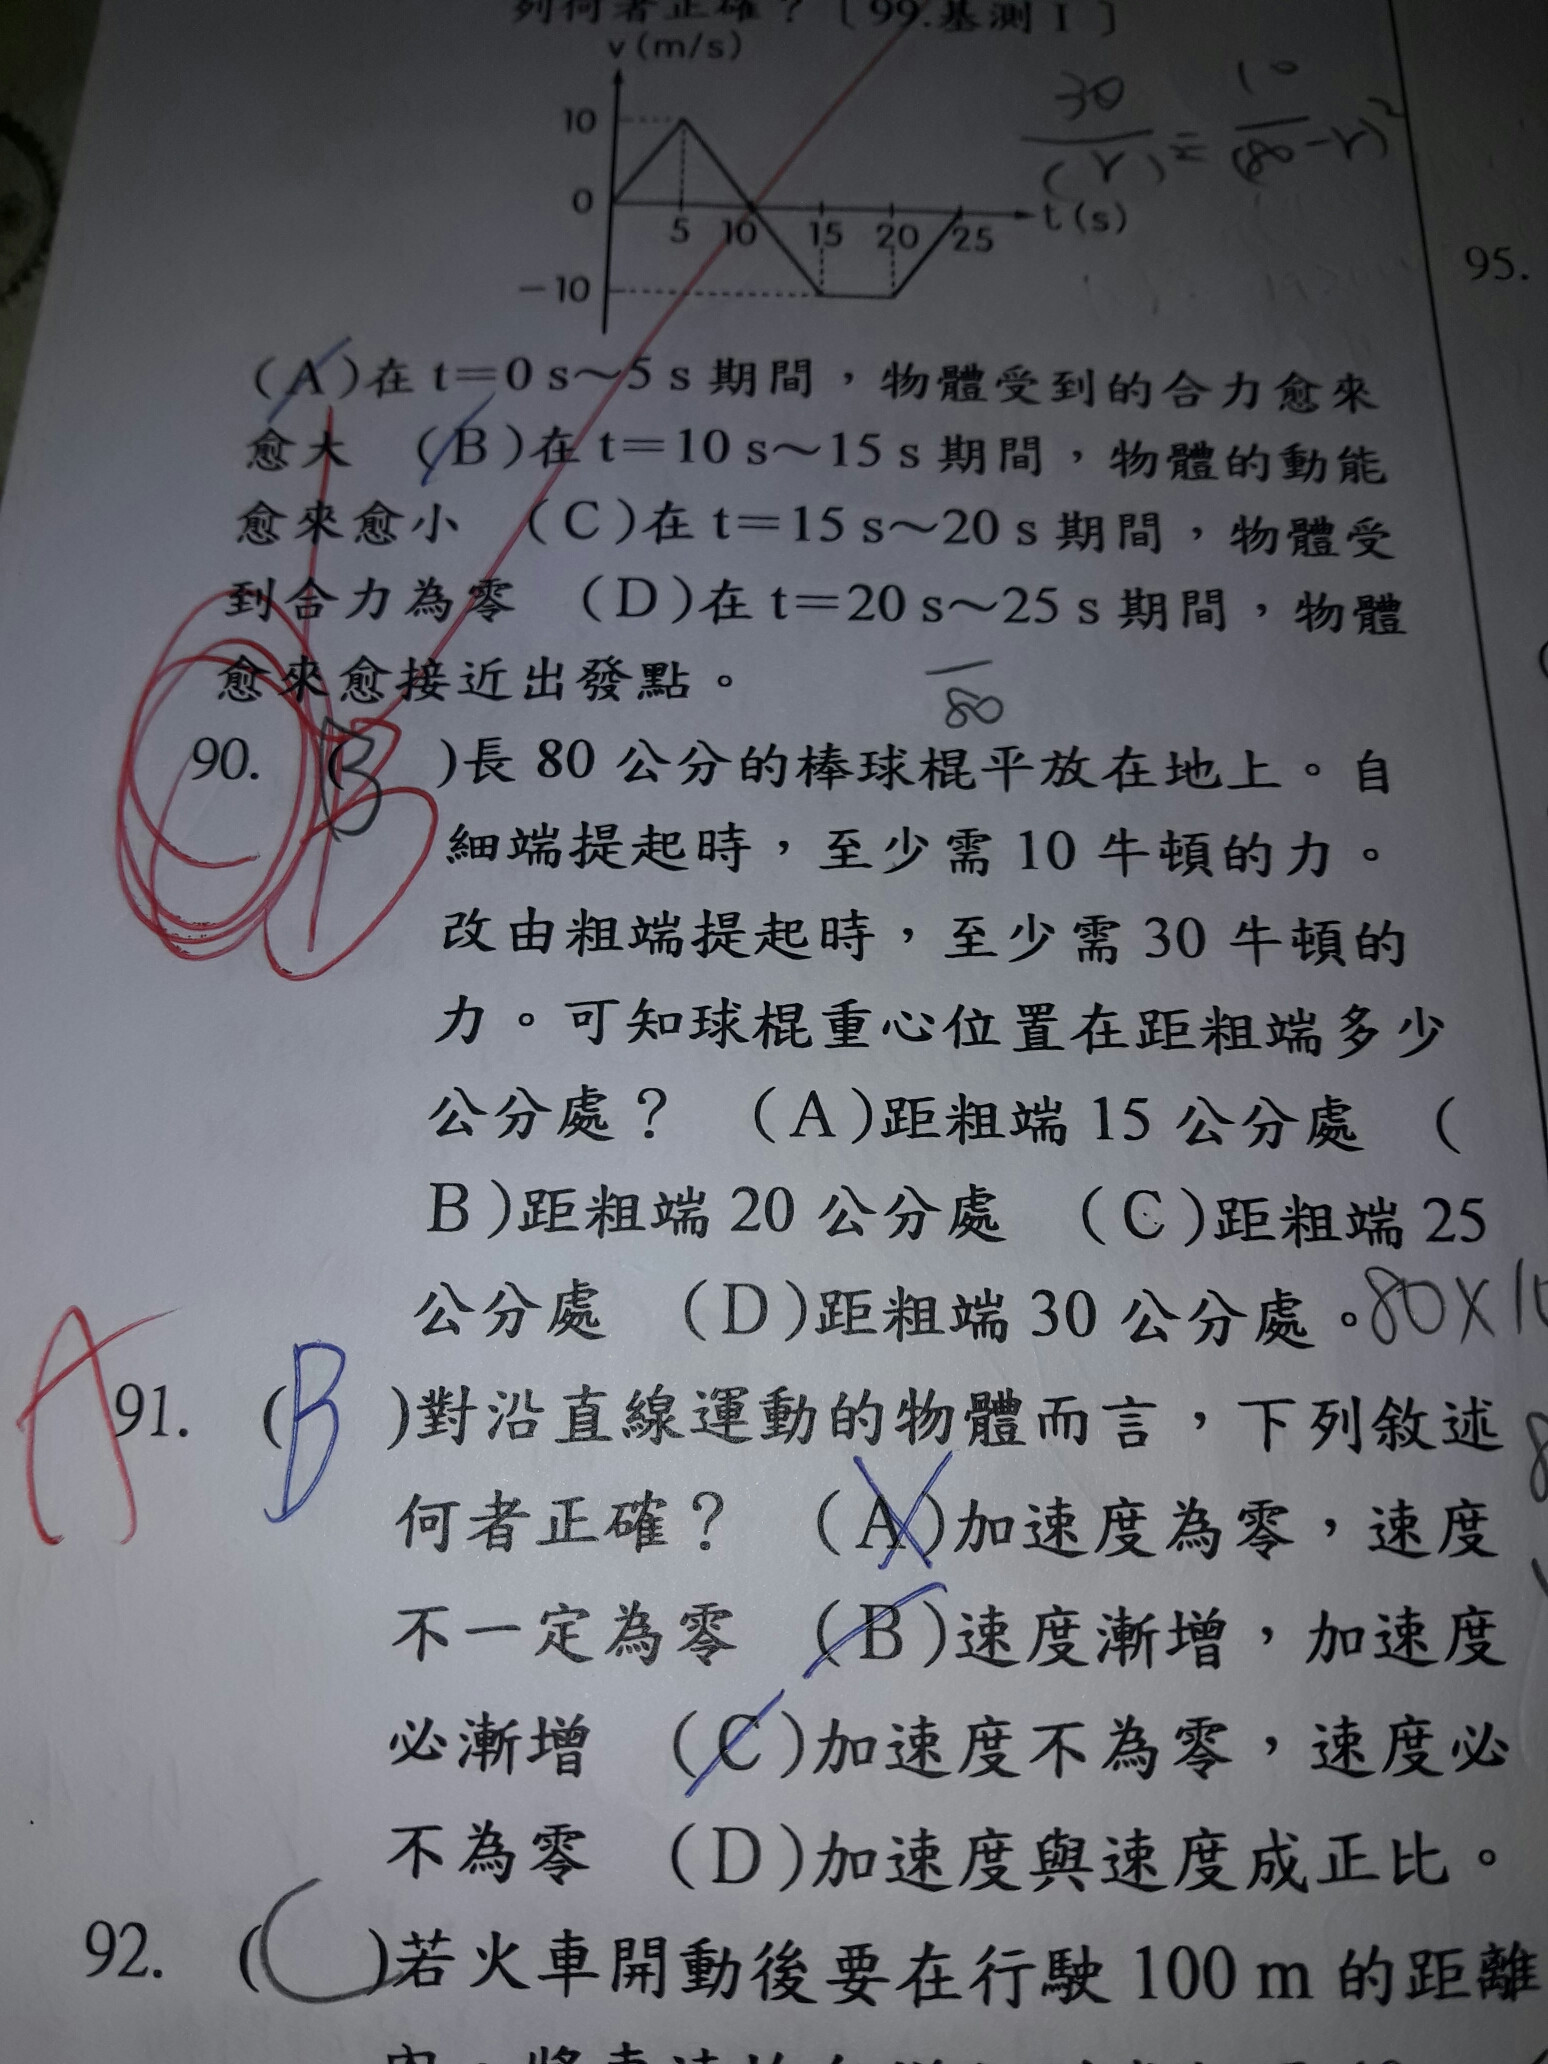 列何者正確？〔99.基測Ⅰ〕
v(m/s)
10
0
-10
5 10 15 20 25
t(s)
30
(r)
=
10
(80-r)²
95.
(A)在 t=0 s～5 s 期間，物體受到的合力愈來
愈大 (B)在 t=10 s～15 s 期間，物體的動能
愈來愈小 (C)在 t=15 s～20 s 期間，物體受
到合力為零 (D)在 t=20 s～25 s 期間，物體
愈來愈接近出發點。
80
90. (B )長 80 公分的棒球棍平放在地上。自
細端提起時，至少需 10 牛頓的力。
改由粗端提起時，至少需 30 牛頓的
力。可知球棍重心位置在距粗端多少
公分處？ (A)距粗端 15 公分處 (
B)距粗端 20 公分處 (C)距粗端 25
公分處 (D)距粗端 30 公分處。
80×10
A
91. (B )對沿直線運動的物體而言，下列敘述
何者正確？ (A)加速度為零，速度
不一定為零 (B)速度漸增，加速度
必漸增 (C)加速度不為零，速度必
不為零 (D)加速度與速度成正比。
92. (C )若火車開動後要在行駛 100 m 的距離